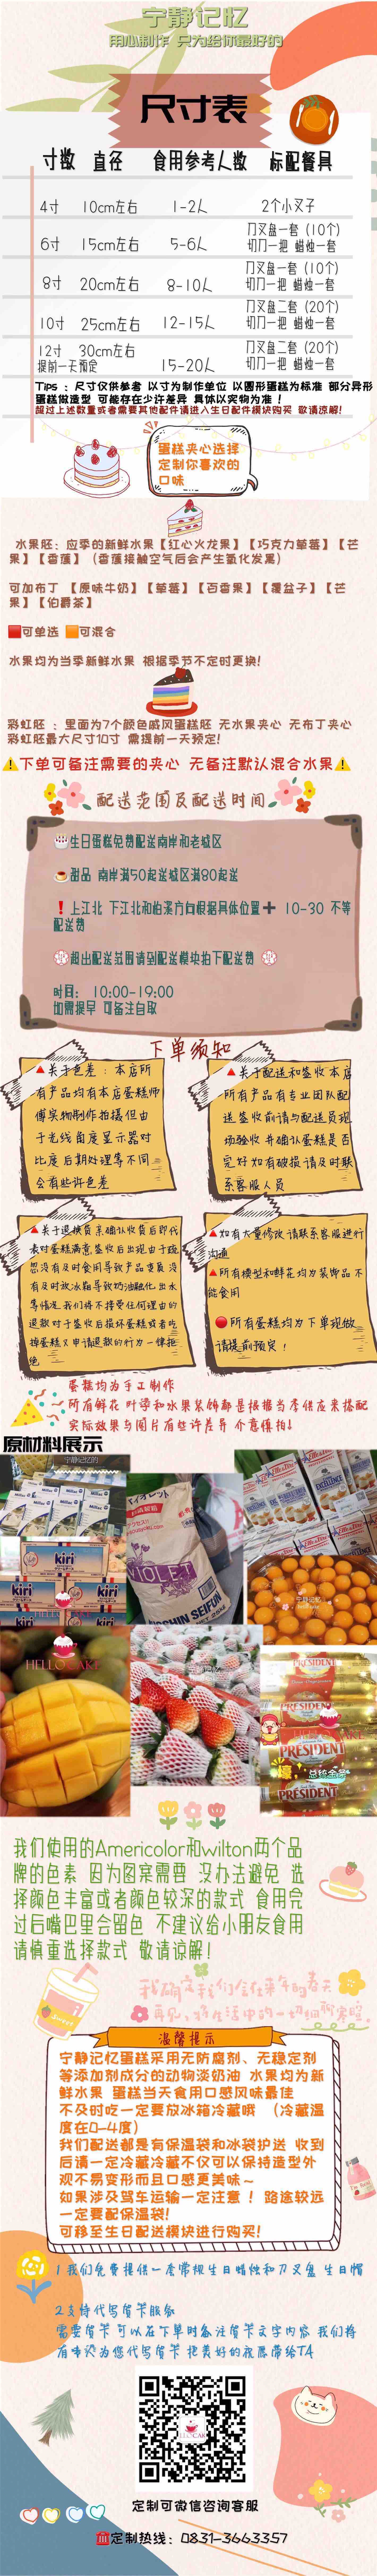 宁静记忆
用心制作 只为给你最好的
尺寸表
寸数 直径 食用参考人数 标配餐具
4寸 10cm左右 1-2人 2个小叉子
6寸 15cm左右 5-6人 刀叉盘一套（10个）
切刀一把 蜡烛一套
8寸 20cm左右 8-10人 刀叉盘一套（10个）
切刀一把 蜡烛一套
10寸 25cm左右 12-15人 刀叉盘二套（20个）
切刀一把 蜡烛一套
12寸 30cm左右
提前一天预定 15-20人 刀叉盘二套（20个）
切刀一把 蜡烛一套
Tips ：尺寸仅供参考 以寸为制作单位 以圆形蛋糕为标准 部分异形
蛋糕做造型 可能存在少许差异 具体以实物为准！
超过上述数量或者需要其他配件请进入生日配件模块购买 敬请谅解!
蛋糕夹心选择
定制你喜欢的
口味
水果胚：应季的新鲜水果【红心火龙果】【巧克力草莓】【芒
果】【香蕉】（香蕉接触空气后会产生氧化发黑）
可加布丁 【原味牛奶】【草莓】【百香果】【覆盆子】【芒
果】【伯爵茶】
可单选 可混合
水果均为当季新鲜水果 根据季节不定时更换!
彩虹胚 ：里面为7个颜色戚风蛋糕胚 无水果夹心 无布丁夹心
彩虹胚最大尺寸10寸 需提前一天预定!
下单可备注需要的夹心 无备注默认混合水果
配送范围及配送时间
生日蛋糕免费配送南岸和老城区
甜品 南岸满50起送城区满80起送
上江北 下江北和柏溪方向根据具体位置➕ 10-30 不等
配送费
超出配送范围请到配送模块拍下配送费
时间： 10:00-19:00
如需提早 可备注自取
下单须知
关于色差 ：本店所
有产品均有本店蛋糕师
傅实物制作拍摄但由
于光线角度显示器对
比度后期处理等不同
会有些许色差
关于配送和签收本店
所有产品有专业团队配
送签收前请与配送员现
场验收并确认蛋糕是否
完好如有破损请及时联
系客服人员
关于退换货亲确认收货后即代
表对蛋糕满意签收后出现由于疏
忽没有及时食用导致产品变质没
有及时放冰箱导致奶油融化出水
等情况我们将不接受任何理由的
退款对于签收后损坏蛋糕或者吃
掉蛋糕又申请退款的行为一律拒
绝
如有大量修改请联系客服进行
沟通
所有模型和鲜花均为装饰品不
能食用
所有蛋糕均为下单现做
请提前预定！
蛋糕均为手工制作
所有鲜花 叶子和水果装饰都是根据当季供应来搭配
实际效果与图片有些许差异 介意慎拍!
原材料展示
宁静记忆的
Milram
kiri
VIOLET
NISSHIN SEIFUN
宁静记忆
HELLO CAKE
PRÉSIDENT
壕
总统金条
我们使用的Americolor和wilton两个品
牌的色素 因为图案需要 没办法避免 选
择颜色丰富或者颜色较深的款式 食用完
过后嘴巴里会留色 不建议给小朋友食用
请慎重选择款式 敬请谅解!
Sweet
我确定我们会在来年的春天
再见
温馨提示
宁静记忆蛋糕采用无防腐剂、无稳定剂
等添加剂成分的动物淡奶油 水果均为新
鲜水果 蛋糕当天食用口感风味最佳
不及时吃一定要放冰箱冷藏哦 （冷藏温
度在0-4度）
我们配送都是有保温袋和冰袋护送 收到
后请一定冷藏冷藏不仅可以保持造型外
观不易变形而且口感更美味～
如果涉及驾车运输一定注意 ！路途较远
一定要配保温袋!
可移至生日配送模块进行购买!
1 我们免费提供一套常规生日蜡烛和刀叉盘 生日帽
2支持代写贺卡服务
需要贺卡可以在下单时备注贺卡文字内容 我们将
有专人为您代写贺卡 把美好的祝愿带给TA
定制可微信咨询客服
定制热线：0831-3663357